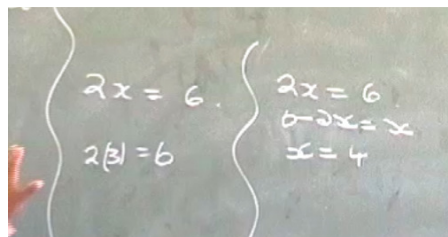 2x = 6.
2(3) = 6
2x = 6.
6-2x = x
x = 4